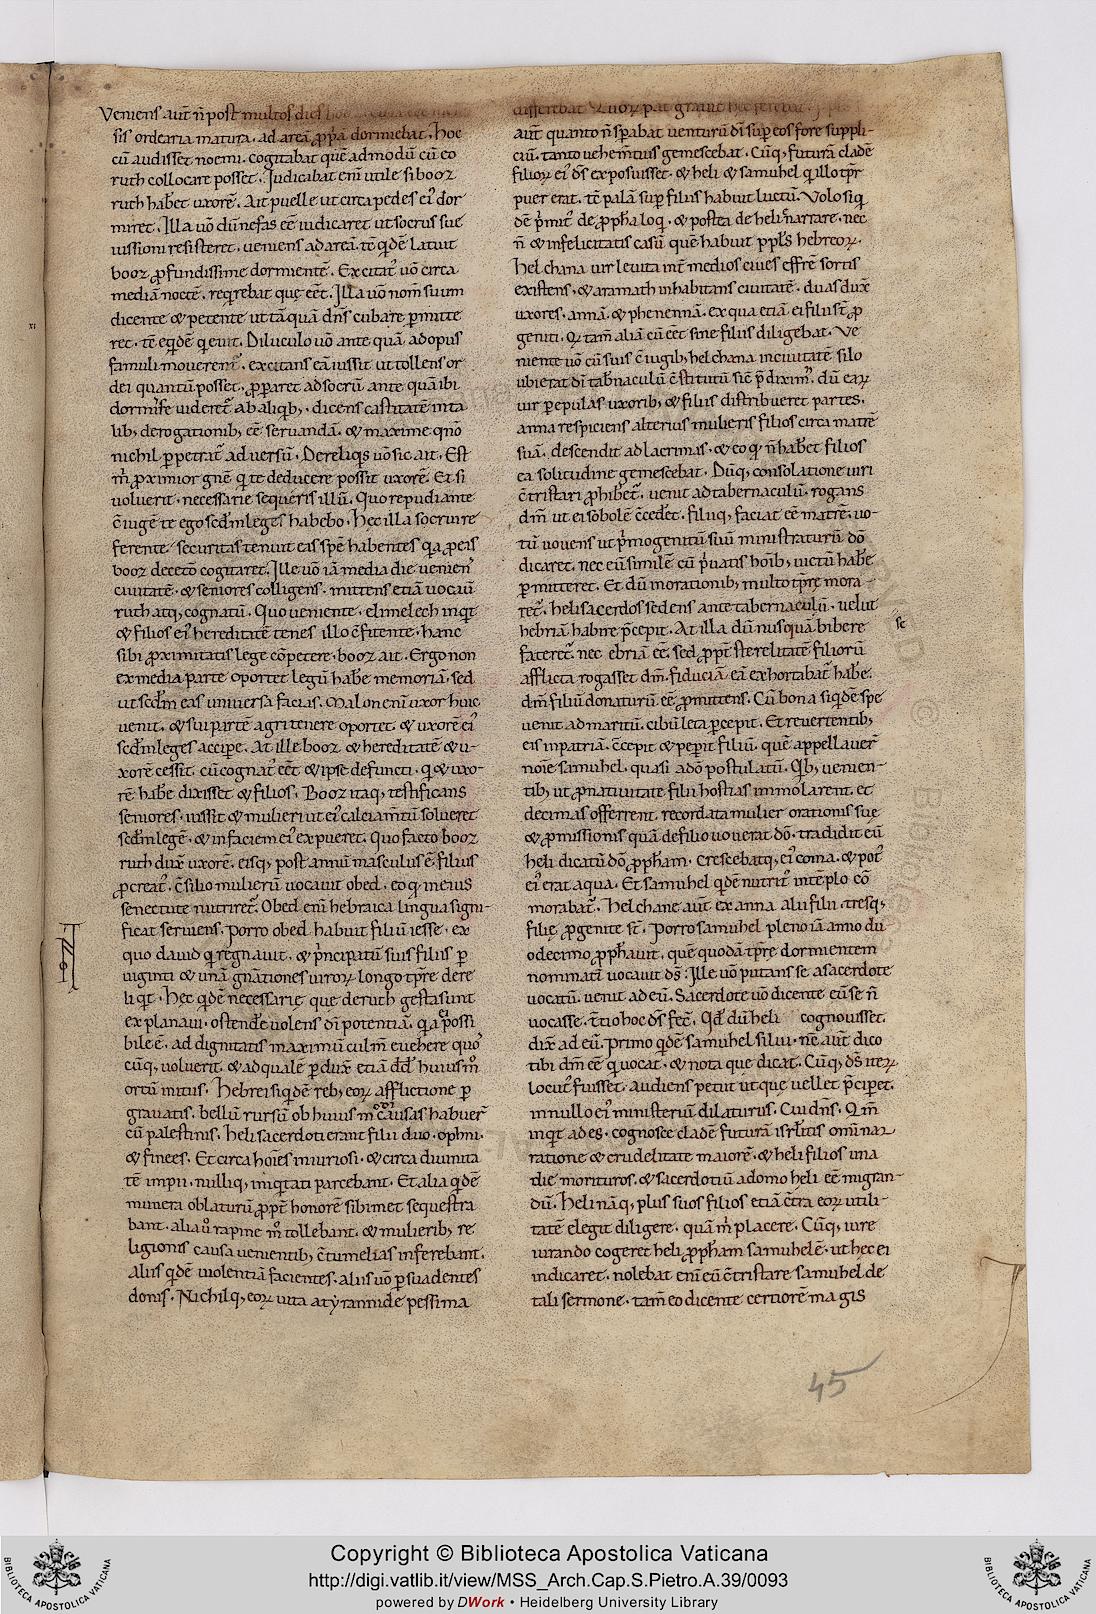 Veniens aut̄ n̄ post multos dies
sis ordearia matura. ad areā ꝓpꝛiā dormiebat. Hoc
cū audisset noemi. cogitabat quē admodū cū eo
ruth collocare posset. Iudicabat eni utile si booz
ruth habet uxorē. Ait puelle ut circa pedes eiꝰ dor
miret. Illa uō dū nefas eē iudicaret ut socrus sue
iussioni resisteret. ueniens ad areā. tē qͥdē latuit
booz ꝓfundissime dormientē. Excitatꝰ uō circa
mediā noctē. reqͥrebat quę eēt. Illa uō nom̄ suum
dicente & petente ut tā quā dn̄s cubare ꝑmitte
ret. tē eqͥdē qͥeuit. Diluculo uō ante quā ad opus
famuli mouerent̄. excitans eā iussit ut tollens or
dei quantū posset. ꝓꝑaret ad socrū ante quā ibi
dormisse uideret᷑ ab aliqͥbꝫ. dicens castitatē in ta
libꝫ derogationibꝫ eē seruandā. & maxime qn̄o
nichil ꝑpetrat᷑ aduersū. De reliqͥs uō sic ait. Est
m̄ ꝓximior gn̄e qͥ te deducere possit uxorē. Et si
uoluerit. necessarie sequeris illū. Quo repudiante
c̄iugē te ego scd̄m leges habebo. Hęc illa socrui re
ferente. securitas tenuit eas spē habentes qͥa ꝓ eis
booz decēto cogitaret. Ille uō iā media die uenien̄
ciuitatē. & seniores colligens. mittens etiā uocauī
ruth atqꝫ cognatū. Quo ueniente. elimelech inqͥt
& filios eiꝰ hereditatē tenes illo c̄fitente. hanc
sibi ꝓximitatis lege cōpetere. booz ait. Ergo non
ex media parte oportet legū habe memoriā. sed
ut scd̄m eas uniuersa facias. Malon eni uxor huic
uenit. & sui partē agri tenere oportet. & uxorē eiꝰ
scd̄m leges accipe. At ille booz & hereditatē & u-
xorē cessit. cū cognatꝰ eēt & ipse defuncti. qͥ & uxo-
rē habe dixisset & filios. Booz itaqꝫ testificans
seniores. iussit & mulieri ut eiꝰ calciam̄tū solueret
scd̄m legē. & in faciem eiꝰ expueret. Quo facto booz
ruth dux̄ uxorē. eisqꝫ post annū masculus ē filius
ꝓcreatꝰ. c̄silio mulierū uocauit obed. eo qͥ in eius
senectute nutriret᷑. Obed eni hebraica lingua signi-
ficat seruiens. Porro obed habuit filiū iesse. ex
quo dauid qͥ regnauit. & pͥncipatū suis filiis ꝑ
uiginti & unā gn̄ationes uiroꝝ longo tꝑre dere
liqͥt. Hęc qͥdē necessarię que de ruth gesta sunt
explanaui. ostendēre uolens dī potentiā. qͥa ei possi
bile ē. ad dignitatis maximū culm̄ euehere quos
cūqꝫ uoluerit. & ad qualē ꝑdux̄ etiā dd̄ huius m̊
ortū initus. Hebrei siqͥdē rebꝫ eoꝝ afflictione ꝑ
grauatis. bellū rursū ob huius m̊ causas habuer̄
cū palestinis. Heli sacerdoti erant filii duo. ophni.
& finees. Et circa hoīes iniuriosi. & circa diuinita
tē impii. nulliqꝫ iniqͥtati parcebant. Et alia qͥdē
munera oblaturū ꝓpt̄ honorē sibimet sequestra
bant. alia ů rapine m̊ tollebant. & mulieribꝫ re
ligionis causa uenientibꝫ c̄tumelias inferebant.
aliis qͥdē uiolentiā facientes. aliis uō ꝑsuadentes
donis. Nichilqꝫ eoꝝ uita a tyrannide pessima
differebat
aut̄ quanto n̄ sꝑabat uenturū dī suꝑ eos fore suppli-
ciū. tanto uehem̄tius gemescebat. Cūqꝫ futurā cladē
filioꝝ eiꝰ dꝰs exposuisset. & heli & samuhel qͥ illo tꝑr
puer erat. tē palā suꝑ filiis habuit luctū. Volo siqͥ
dē pͥmitꝰ de ꝓph̄a loqͥ. & postea de heli n̄arrare. nec
n̄ & infelicitatis casū quē habuit ppl̄s hebreoꝝ.
Helchana uir leuita int̄ medios ciues effrē sortis
existens. & aramath inhabitans ciuitatē. duas dux̄
uxores. annā. & phenennā. ex qua etiā ei filii st̄ ꝓ
geniti. Qͥ tam̄ aliā cū eēt sine filiis diligebat. Ve
niente uō cū suis c̄iugibꝫ helchana in ciuitatē silo
ubi erat dī tab̄naculū c̄stitutū sic p̄diximꝰ. dū eaꝝ
uir ꝑ epulas uxoribꝫ & filiis distribueret partes.
anna respiciens alterius mulieris filios circa matrē
suā. descendit ad lacrimas. & eo qͥ n̄ habet filios
ea solitudine gemescebat. Dūqꝫ consolatione uiri
c̄tristari ꝓhibet᷑. uenit ad tabernaculū. rogans
dm̄ ut ei sobolē c̄cedet. filiiqꝫ faciat eē matrē. uo-
tū uouens ut pͥmogenitū suū ministraturū dō
dicaret. nec eū similē cū pͥuatis hoībꝫ uictū habe
ꝑmitteret. Et dū in orationibꝫ multo tꝑre mora-
ret᷑. heli sacerdos sedens ante tabernaculū. uelut
hebriā habire p̄cepit. At illa dū nusquā bibere se
fateret᷑. nec ebriā eē. sed ꝓpt̄ sterelitatē filiorū
afflicta rogasset dm̄. fiduciā eā exhortabat᷑ habe.
dm̄ filiū donaturū eē ꝓmittens. Cū bona siqͥdē spe
uenit ad maritū. cibū leta ꝑcepit. Et reuertentibꝫ
eis in patriā. c̄cepit & peꝑit filiū. quē appellauer̄
noīe samuhel. quasi a dō postulatū. Qͥbꝫ uenien-
tibꝫ ut ꝓ natiuitate filii hostias immolarent. et
decimas offerrent. recordata mulier orationis sue
& ꝓmissionis quā de filio uouerat dō. tradidit eū
heli dicatū dō ꝓph̄am. Crescebatqꝫ eiꝰ coma. & potꝰ
eiꝰ erat aqua. Et samuhel qͥdē nutritꝰ in tēplo eō
morabat᷑. Helchane aut̄ ex anna alii filii. tresqꝫ
filię ꝓgenite st̄. Porro samuhel pleno iā anno du
odecimo ꝓph̄auit. quē quodā tꝑre dormientem
nominatī uocauit dꝰs. Ille uō putans se a sacerdote
uocatū. uenit ad eū. Sacerdote uō dicente eū se n̄
uocasse. t̄tio hoc dꝰs fec̄. Qd̄ dū heli cognouisset.
dix̄ ad eū. Primo qͥdē samuhel silui. nc̄ aut̄ dico
tibi dm̄ eē qͥ uocat. & nota que dicat. Cūqꝫ dꝰs iteꝝ
locutꝰ fuisset. audiens petiit ut quę uellet p̄ciperet.
in nullo eiꝰ ministeriū dilaturus. Cui dn̄s. Qm̄
inqͥt ades. cognosce cladē futurā isrl̄itis omī nar
ratione & crudelitate maiorē. & heli filios una
die morituros. & sacerdotiū a domo heli eē migran-
dū. Heli nāqꝫ plus suos filios etiā c̄tra eoꝝ utili-
tatē elegit diligere. quā m̄ placere. Cūqꝫ iure
iurando cogeret heli ꝓph̄am samuhelē. ut hęc ei
indicaret. nolebat eni eū c̄tristare samuhel de
tali sermone. tam̄ eo dicente certiorē magis
45
Copyright © Biblioteca Apostolica Vaticana
http://digi.vatlib.it/view/MSS_Arch.Cap.S.Pietro.A.39/0093
powered by DWork • Heidelberg University Library